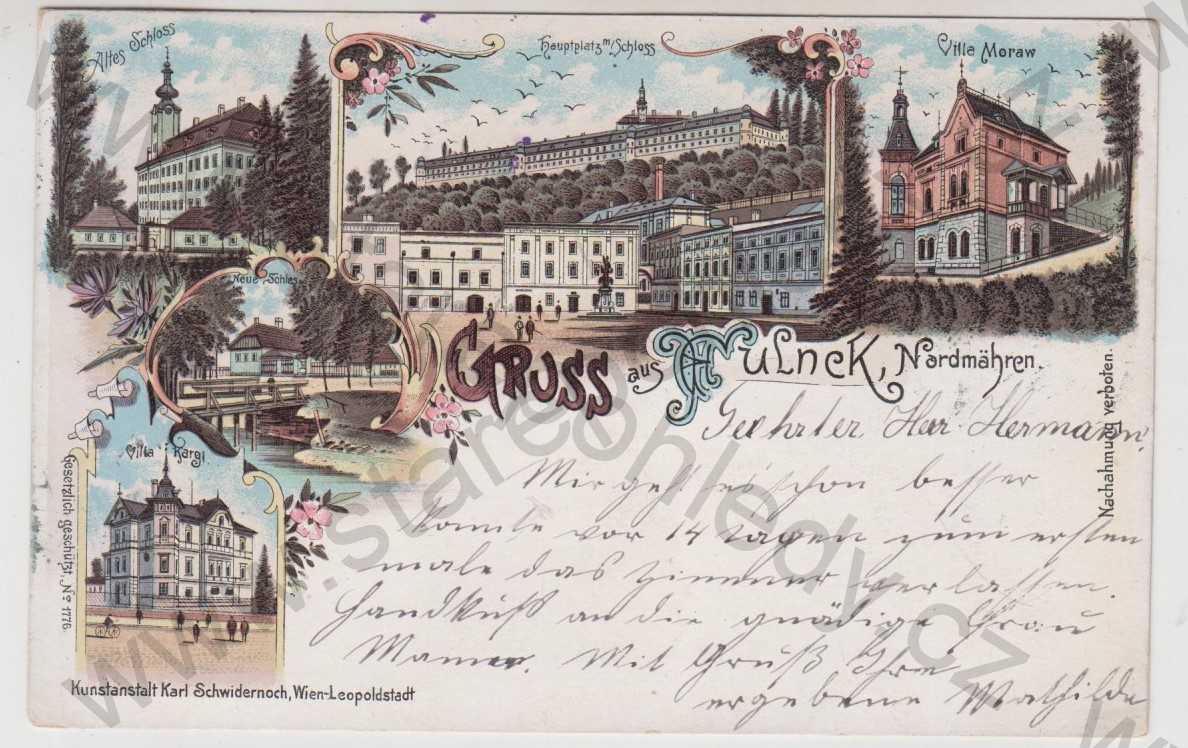 Altes Schloss
Hauptplatz m/Schloss
Villa Moraw
Neue Schless
Gruss aus Fulnek, Nordmähren.
Villa Kargl
Gesetzlich geschützt, No 1776.
Nachahmung verboten.
Geehrter Herr Hermann!
Mir geht es schon besser
konnte vor 14 Tagen zum ersten
male das Zimmer verlassen.
Handkuß an die gnädige Frau
Mama. Mit Gruß Ihre
ergebene Mathilde
Kunstanstalt Karl Schwidernoch, Wien-Leopoldstadt
www.starepohledy.cz